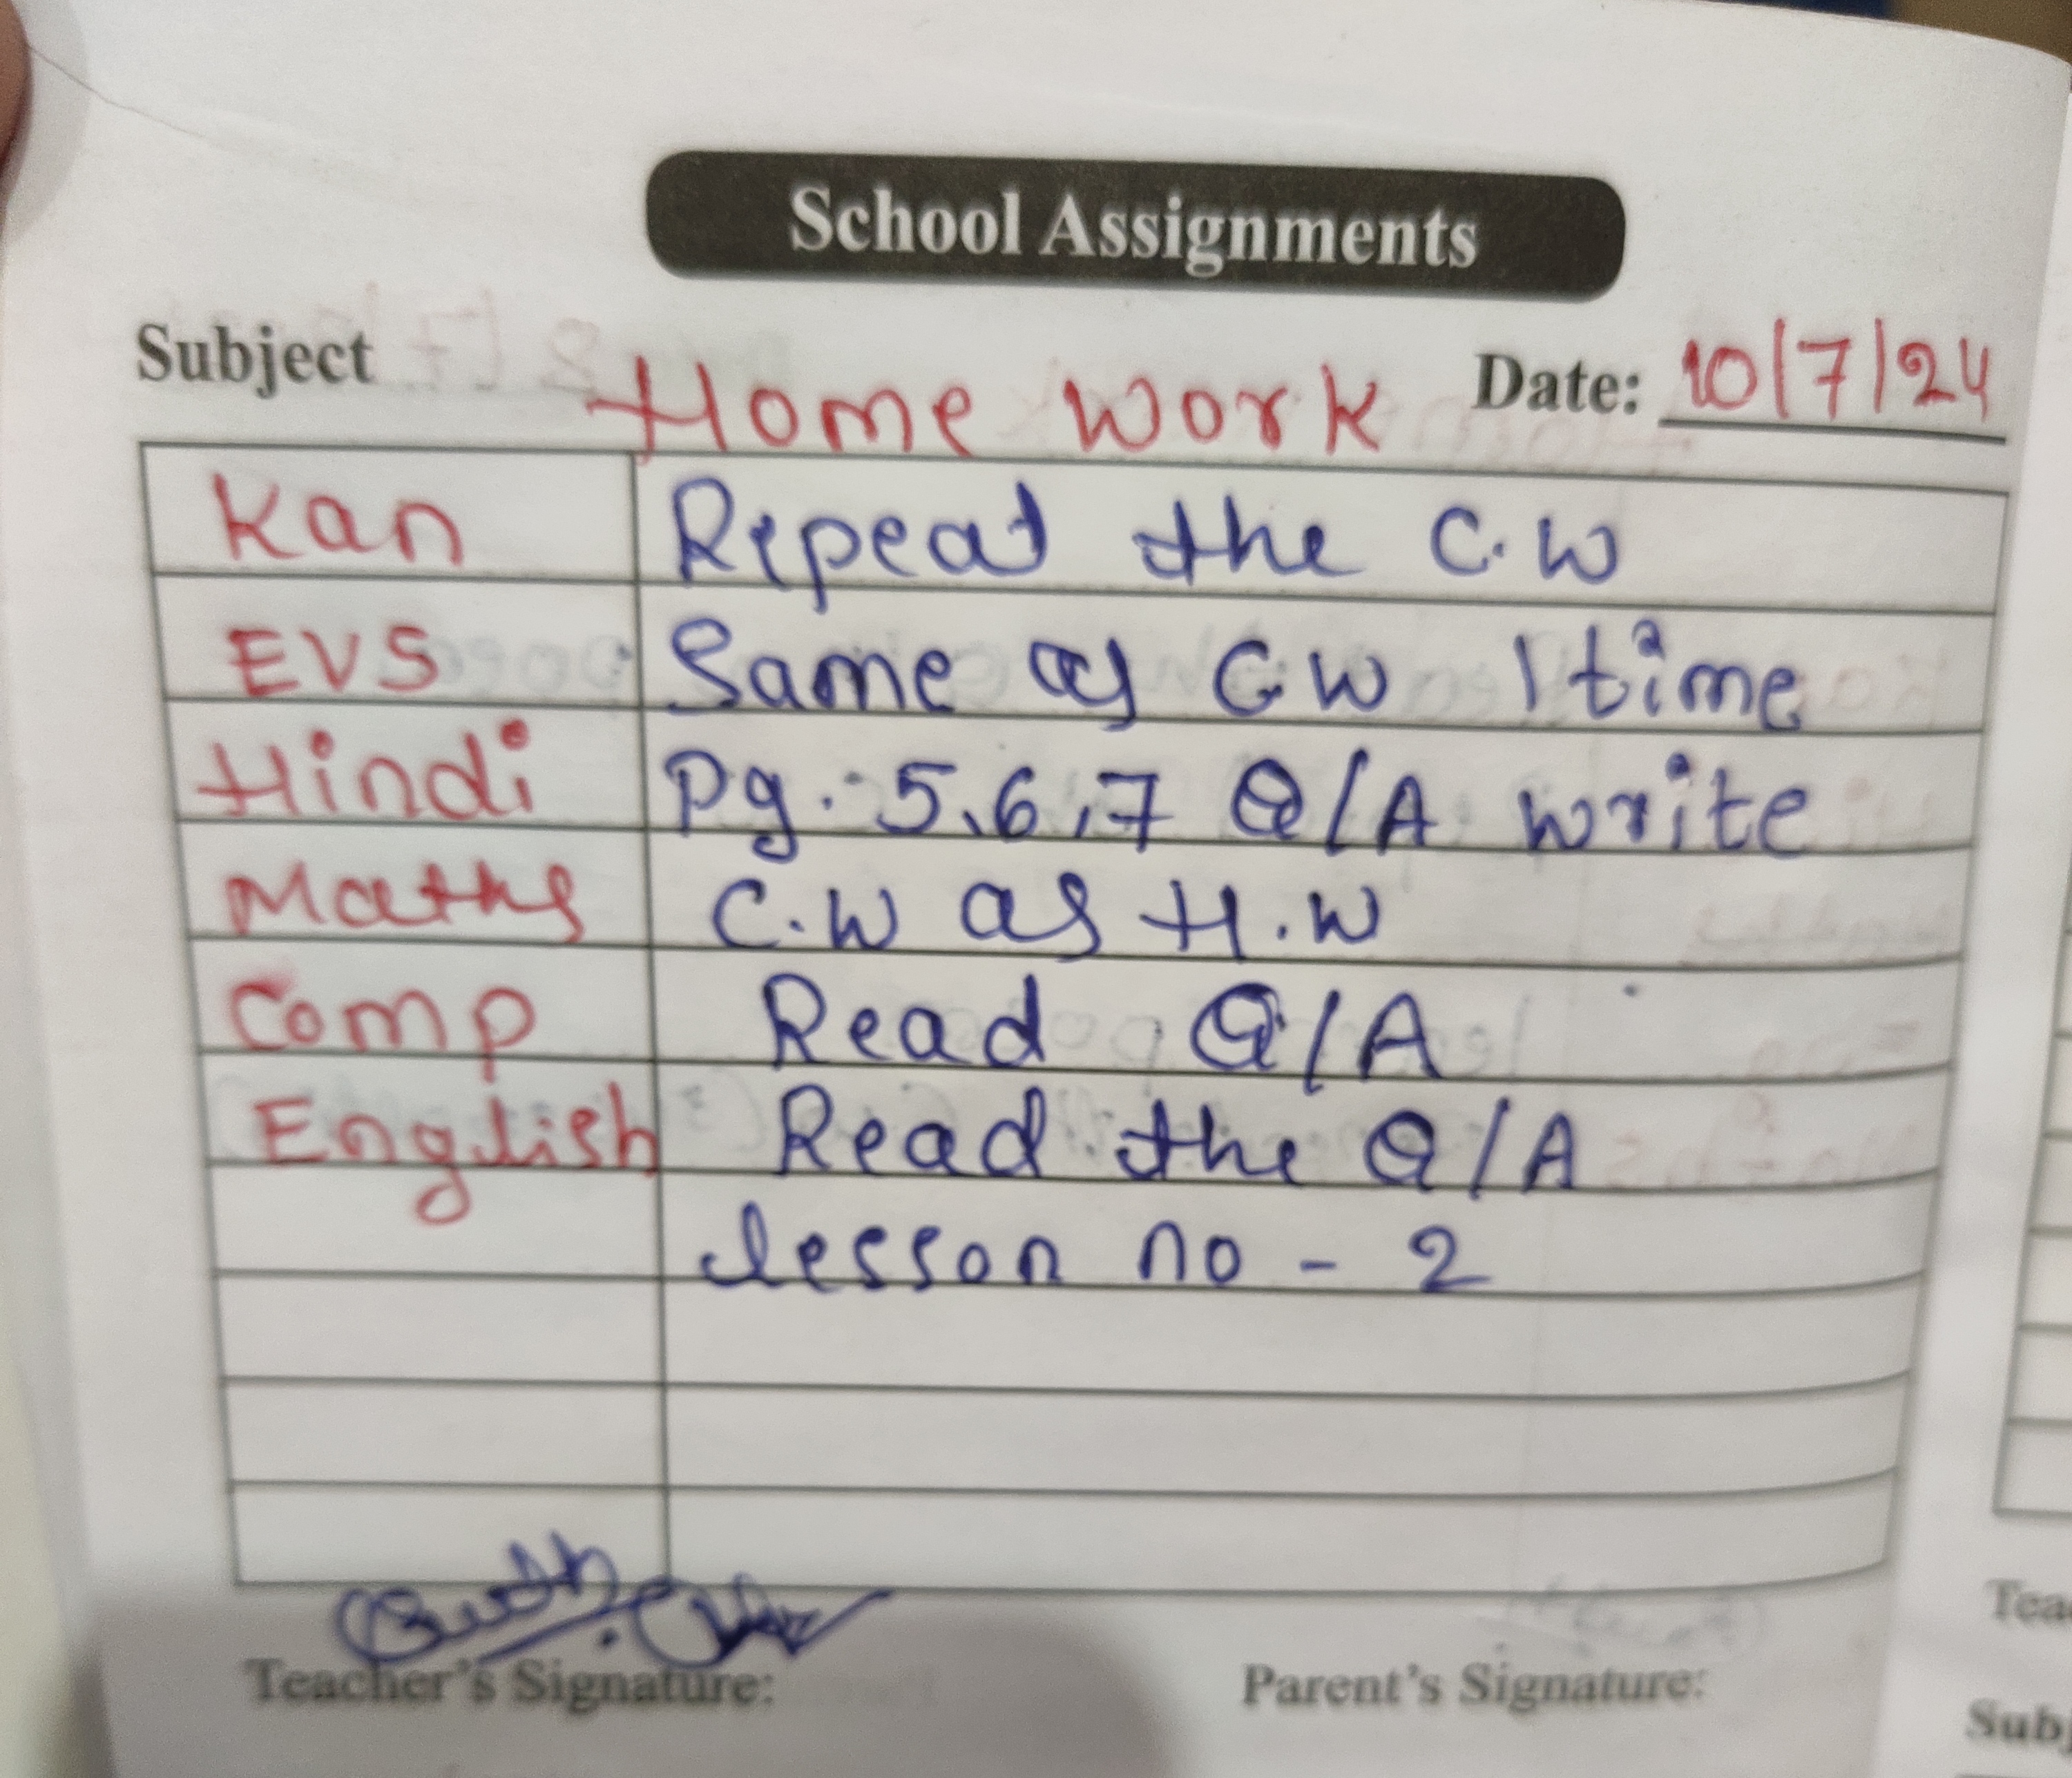 School Assignments
Subject Home Work Date: 10/7/24
Kan Repeat the C.W
EVS Same as C.W 1 time
Hindi Pg. 5,6,7 Q/A write
Maths C.W as H.W
Comp Read Q/A
English Read the Q/A
lesson no - 2
Teacher's Signature: Parent's Signature:
Tea
Subj